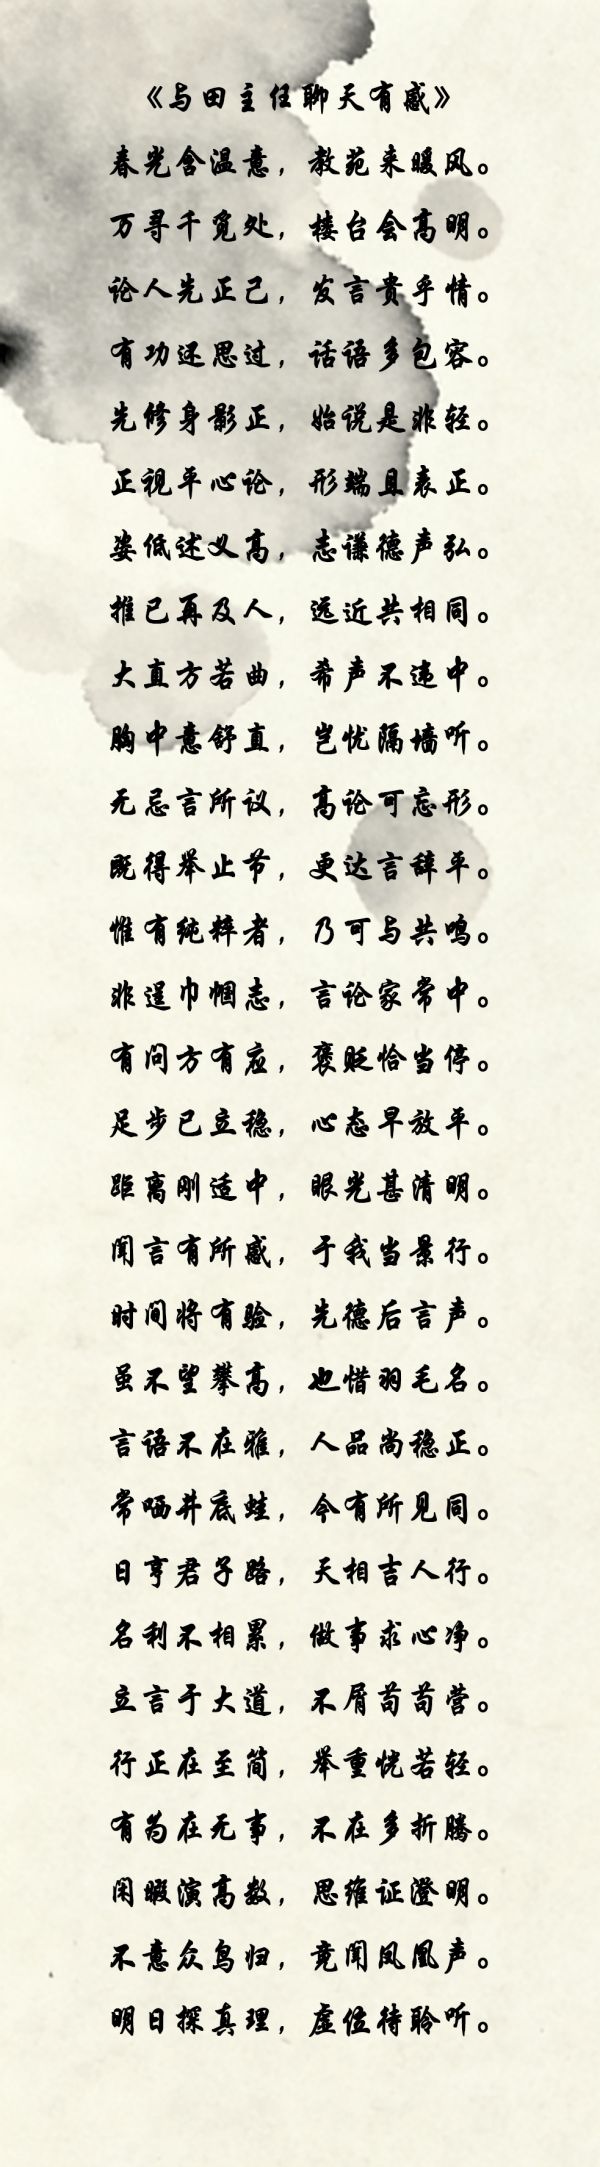 《与田主任聊天有感》
春光含温意，教苑来暖风。
万寻千觅处，楼台会高明。
论人先正己，发言贵乎情。
有功还思过，话语多包容。
先修身影正，始说是非轻。
正视平心论，形端且表正。
姿低述义高，志谦德声弘。
推已再及人，远近共相同。
大直方若曲，希声不违中。
胸中意舒直，岂忧隔墙听。
无忌言所议，高论可忘形。
既得举止节，更达言辞平。
惟有纯粹者，乃可与共鸣。
非逞巾帼志，言论家常中。
有问方有应，褒贬恰当停。
足步已立稳，心态早放平。
距离刚适中，眼光甚清明。
闻言有所感，于我当景行。
时间将有验，先德后言声。
虽不望攀高，也惜羽毛名。
言语不在雅，人品尚稳正。
常哂井底蛙，今有所见同。
日亨君子路，天相吉人行。
名利不相累，做事求心净。
立言于大道，不屑苟苟营。
行正在至简，举重恍若轻。
有为在无事，不在多折腾。
闲暇演高数，思维证澄明。
不意众鸟归，竟闻凤凰声。
明日探真理，虚位待聆听。